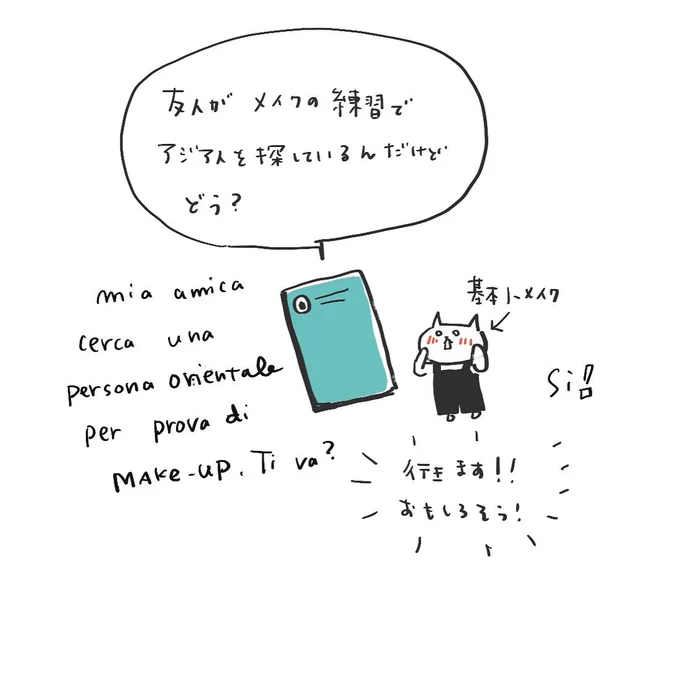 友人が メイクの 練習で
アジア人を探しているんだけど
どう？
mia amica
cerca una
persona orientale
per prova di
MAKE-UP. Ti va?
基本ノーメイク
Si!!
行きます!!
おもしろそう!